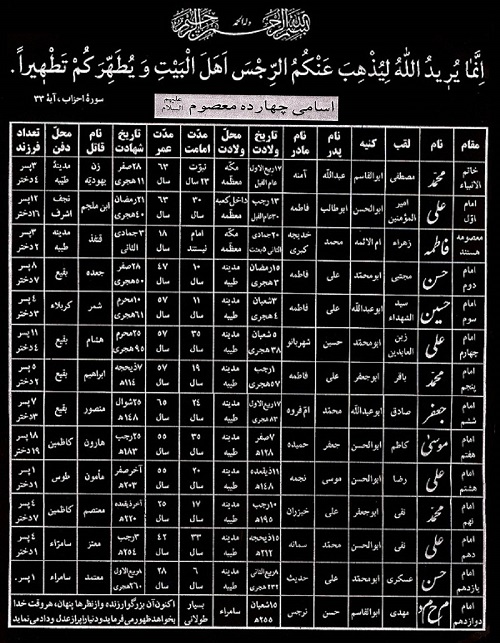 بسم الله الرحمن الرحیم
وله الحمد
اِنَّمٰا یُریدُ اللهُ لِیُذْهِبَ عَنْکُمُ الرِّجْسَ اَهلَ الْبَیْتِ وَ یُطَهِّرَ کُمْ تَطْهیراً.
سورهٔ احزاب، آیهٔ ۳۳
اسامی چهارده معصوم علیهم السلام
مقام نام لقب کنیه نام پدر نام مادر تاریخ ولادت محلّ ولادت مدّت امامت مدّت عمر تاریخ شهادت نام قاتل محلّ دفن تعداد فرزند
خاتم الانبیاء محمّد مصطفی ابوالقاسم عبدالله آمنه ۱۷ربیع‌الاول عام الفیل مکّه معظّمه نبوّت ۲۳سال ۶۳ سال ۲۸صفر ۱۱هجری زن یهودیّه مدینهٔ طیّبه ۳پسر ۴دختر
امام اوّل علی امیر المؤمنین ابوالحسن ابوطالب فاطمه ۱۳رجب ۳۰عام‌الفیل داخل‌کعبه مکّه معظّمه ۳۰ سال ۶۳ سال ۲۱رمضان ۴۰هجری ابن ملجم نجف اشرف ۱۲پسر ۱۶دختر
معصومه هستند فاطمه زهراء ام الائمه محمد خدیجه کبری ۲۰جمادی الثانی ۵بعثت مکّه معظّمه امام نیستند ۱۸ سال ۳جمادی الثانی قنفذ مدینه طیبه ۳پسر ۲دختر
امام دوم حسن مجتبی ابومحمّد علی فاطمه ۱۵رمضان ۳هجری مدینه طیبه ۱۰ سال ۴۷ سال ۲۸صفر ۵۰هجری جعده بقیع ۸پسر ۷دختر
امام سوم حسین سید الشهداء ابوعبدالله علی فاطمه ۳شعبان ۴هجری مدینه طیبه ۱۱ سال ۵۷ سال ۱۰محرم ۶۱هجری شمر کربلاء ۴پسر ۳دختر
امام چهارم علی زین العابدین ابومحمّد حسین شهربانو ۵شعبان ۳۸هجری مدینه طیبه ۳۵ سال ۵۷ سال ۲۵محرم ۹۵هجری هشام بقیع ۱۱پسر ۴دختر
امام پنجم محمّد باقر ابوجعفر علی فاطمه ۱رجب ۵۷هجری مدینه طیبه ۱۹ سال ۵۷ سال ۷ذیحجه ۱۱۴ه ابراهیم بقیع ۵پسر ۲دختر
امام ششم جعفر صادق ابوعبدالله محمّد ام فروه ۱۷ربیع‌الاول ۸۳هجری مدینه طیبه ۲۴ سال ۶۵ سال ۲۵شوال ۱۴۸ه منصور بقیع ۷پسر ۳دختر
امام هفتم موسی کاظم ابوالحسن جعفر حمیده ۷صفر ۱۲۸ه مدینه طیبه ۳۵ سال ۵۵ سال ۲۵رجب ۱۸۳ه هارون کاظمین ۱۸پسر ۱۹دختر
امام هشتم علی رضا ابوالحسن موسی نجمه ۱۱ذیقعده ۱۴۸ه مدینه طیبه ۲۰ سال ۵۵ سال آخرصفر ۲۰۳ه مأمون طوس ۱پسر ۱دختر
امام نهم محمّد تقی ابوجعفر علی خیزران ۱۰رجب ۱۹۵ه مدینه طیبه ۱۷ سال ۲۵ سال آخرذیقعده ۲۲۰ه معتصم کاظمین ۴پسر ۷دختر
امام دهم علی نقی ابوالحسن محمّد سمانه ۱۵ذیحجه ۲۱۲ه مدینه طیبه ۳۳ سال ۴۲ سال ۳رجب ۲۵۴ه معتز سامراء ۴پسر ۱دختر
امام یازدهم حسن عسکری ابومحمّد علی حدیث ۸ربیع‌الثانی ۲۳۲هجری مدینه طیبه ۶ سال ۲۸ سال ۸ربیع‌الاول ۲۶۰هجری معتمد سامراء ۱پسر.
امام دوازدهم م ح م د مهدی ابوالقاسم حسن نرجس ۱۵شعبان ۲۵۵ه سامراء بسیار طولانی اکنون آن بزرگوار زنده و از نظرها پنهان، هر وقت خدا بخواهد ظهور می فرماید و دنیا را پر از عدل و داد می نماید.